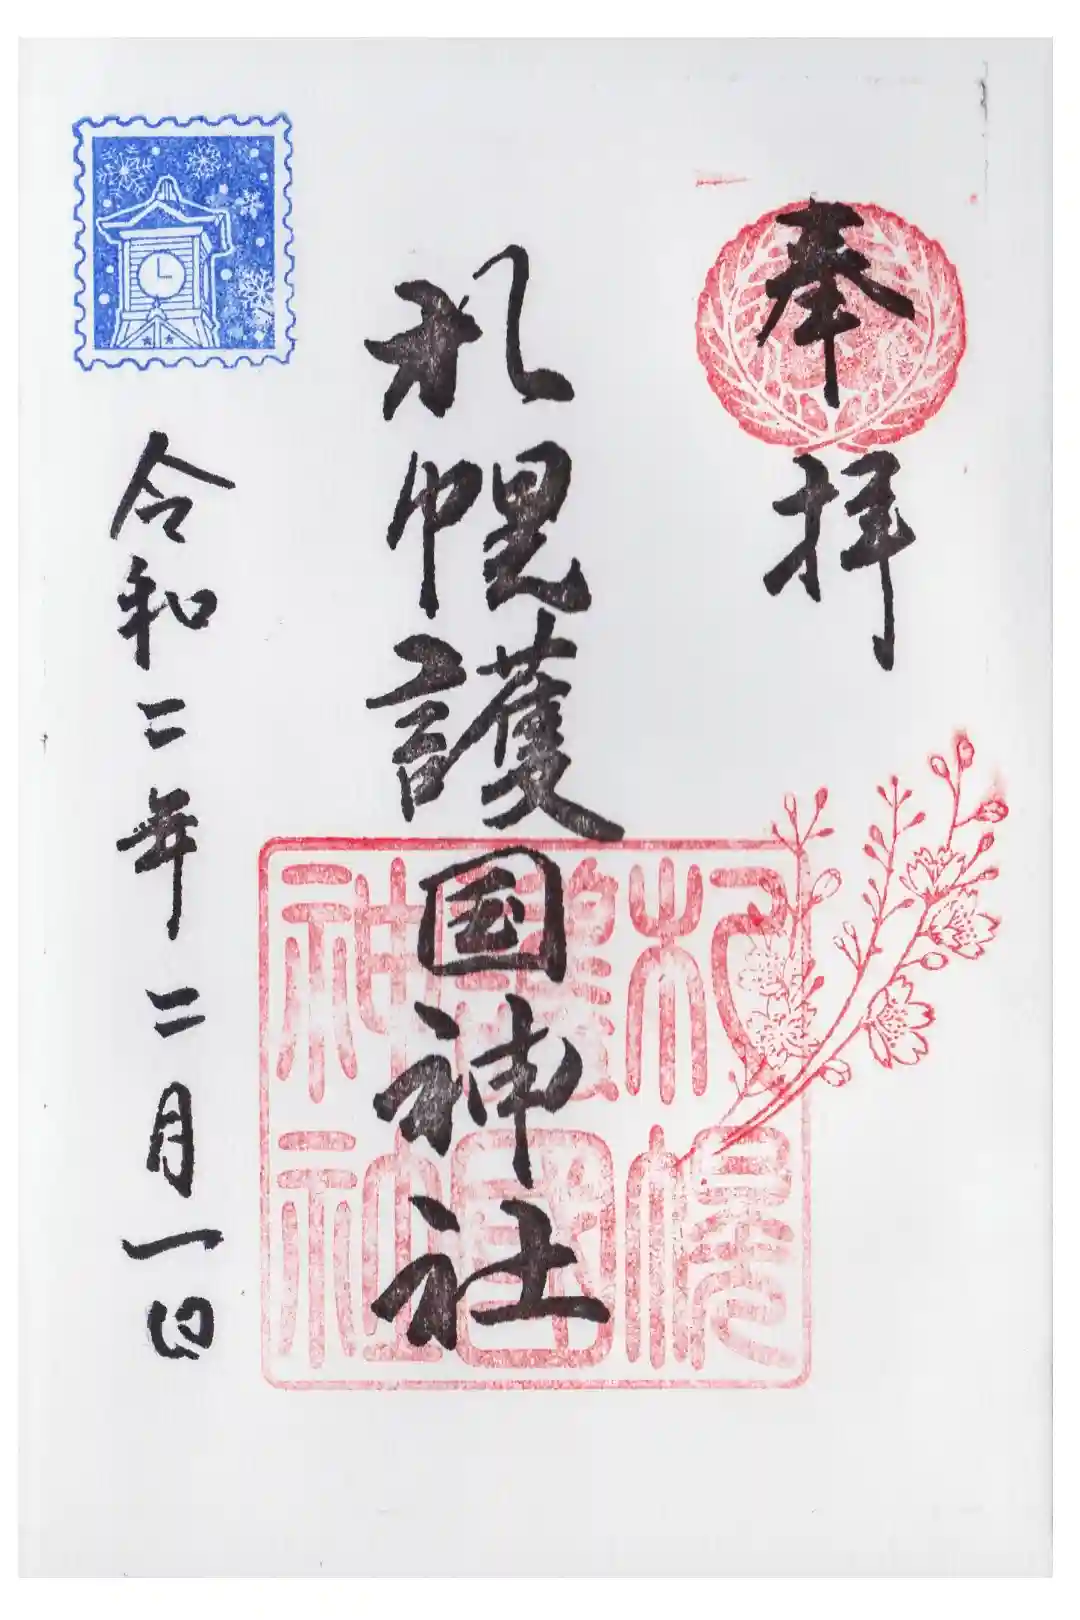 奉拝
札幌護国神社
札幌
護國
神社
令和二年二月一日